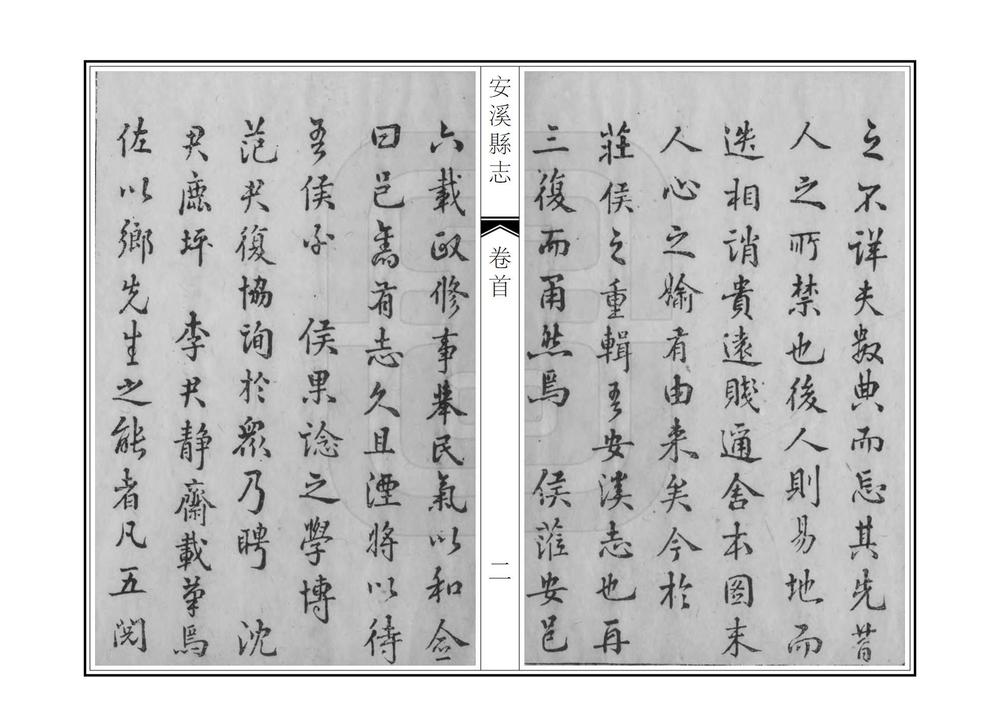 之不詳夫數典而忘其先昔
人之所禁也後人則易地而
迭相誚貴遠賤邇舍本圖末
人心之婾有由来矣今於
莊侯之重輯吾安溪志也再
三復而甬然焉 侯蒞安邑
安溪縣志
卷首
二
六載政修事舉民氣以和僉
曰邑舊有志久且湮將以待
吾侯尔 侯果諗之學博
范君復協詢於眾乃聘 沈
君鹿坪 李君靜齋載筆焉
佐以鄉先生之能者凡五閱